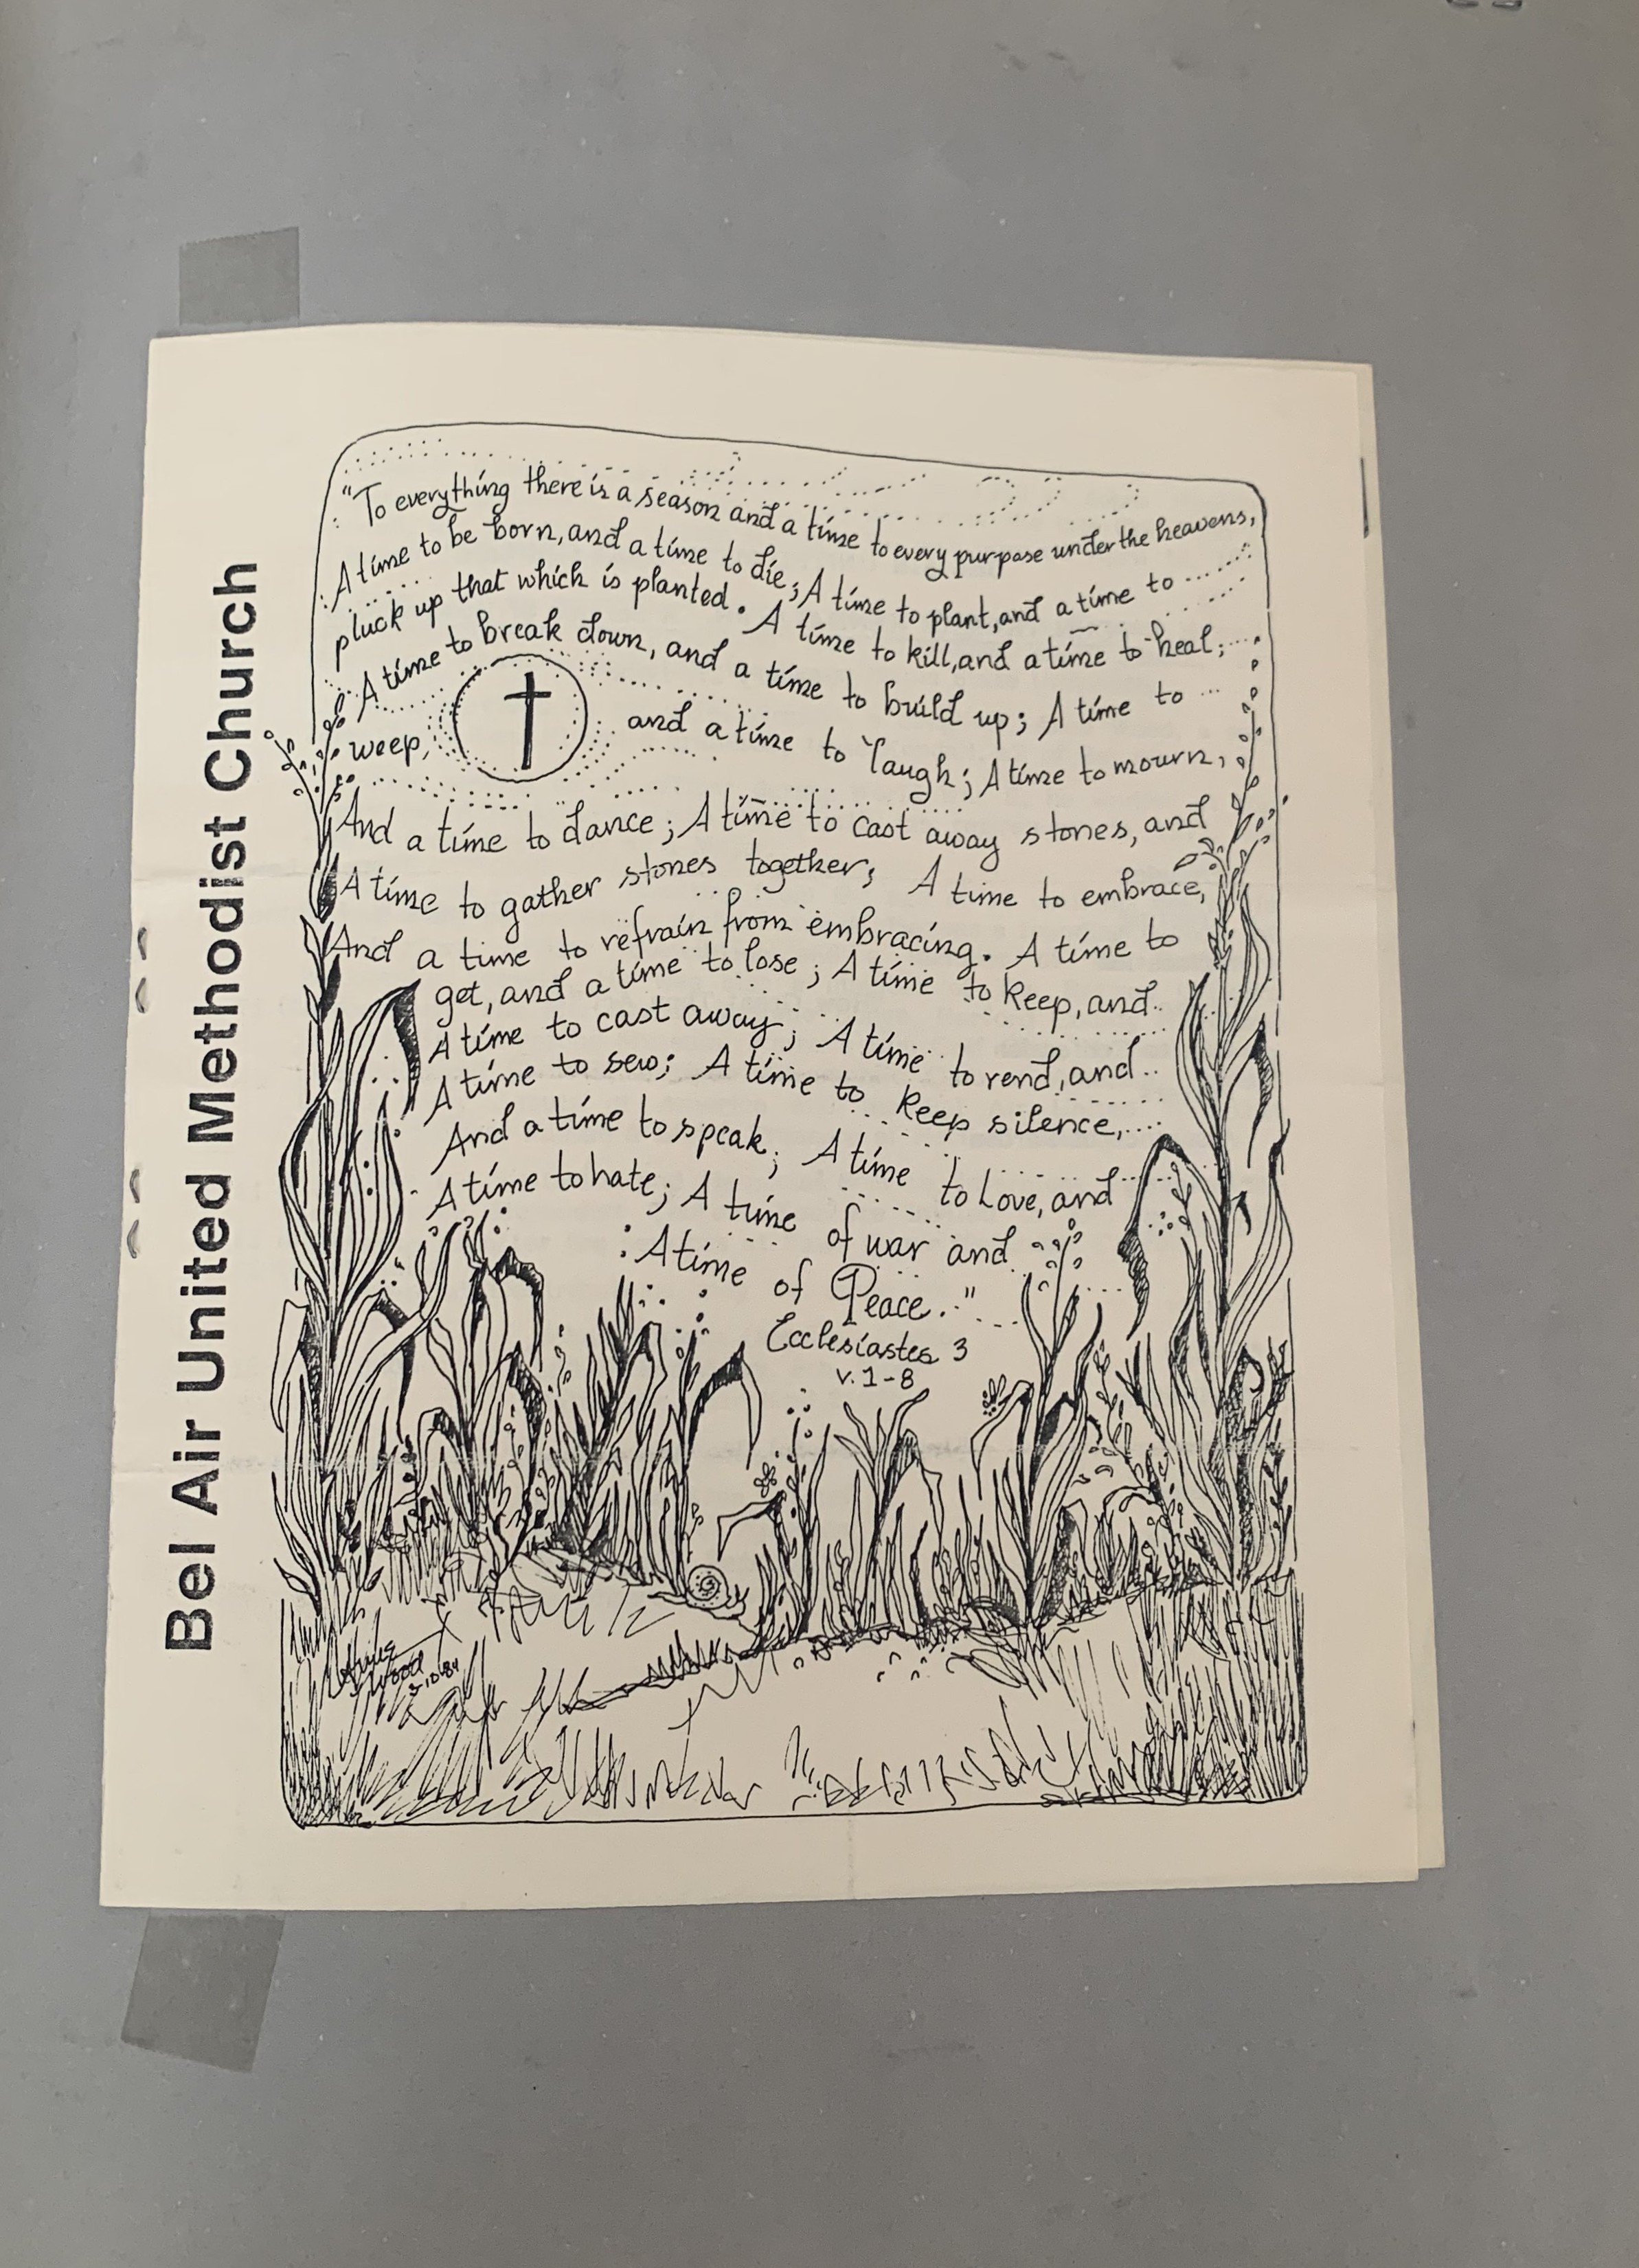 Bel Air United Methodist Church
"To everything there is a season and a time to every purpose under the heavens,
A time to be born, and a time to die; A time to plant, and a time to
pluck up that which is planted. A time to kill, and a time to heal;
A time to break down, and a time to build up; A time to
weep, and a time to laugh; A time to mourn,
And a time to dance; A time to cast away stones, and
A time to gather stones together; A time to embrace,
And a time to refrain from embracing. A time to
get, and a time to lose; A time to keep, and
A time to cast away; A time to rend, and
A time to sew; A time to keep silence,
And a time to speak; A time to Love, and
A time to hate; A time of war and
A time of Peace.."
Ecclesiastes 3
v. 1-8
Wood
3-10-84